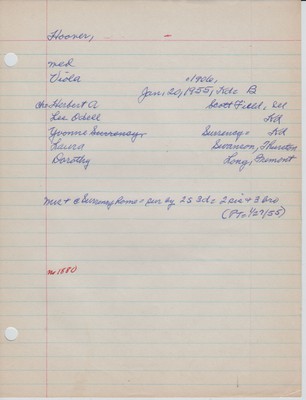 Hoover, -
med
Viola =1906,
Jan, 20, 1955, Feb B
Herbert A Scott Field, Ill
Lee Odell Kd
Yvonne Surrency, Surrency= Kd
Laura Swanson, Thurston
Dorothy Long, Fremont
Mre + @ Surrency Home = sur by 2s 3d= 2 sis + 3 bro
(PT= 1/27/55)
no 1880